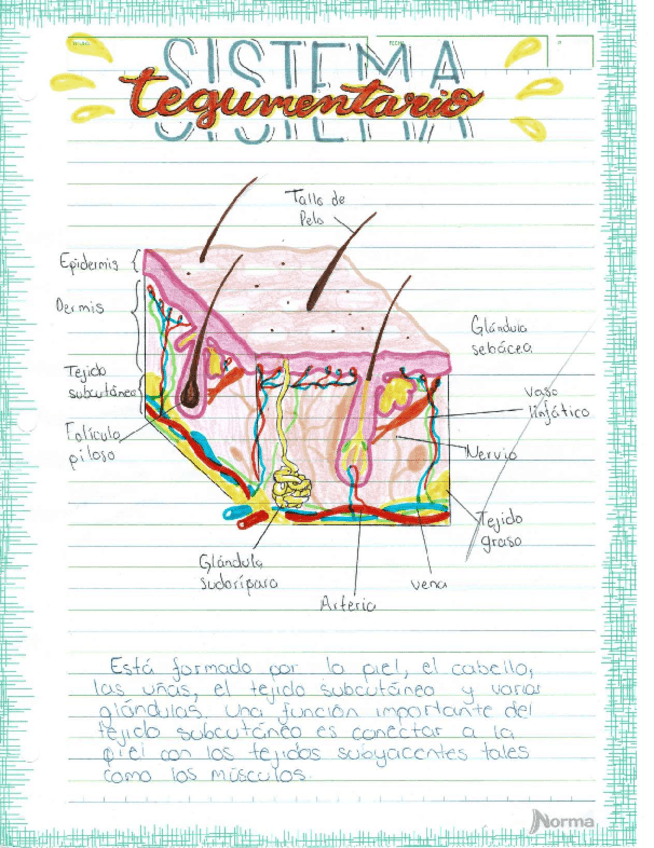 SISTEMA
tegumentario
FECHA
Tallo de
Pelo
Epidermis
Dermis
Glándula
sebácea
Tejido
subcutáneo
vaso
linfático
Folículo
piloso
Nervio
Tejido
graso
Glándula
sudorípara
vena
Arteria
Está formado por la piel, el cabello,
las uñas, el tejido subcutáneo y varias
glándulas. Una función importante del
tejido subcutáneo es conectar a la
piel con los tejidos subyacentes tales
como los músculos.
Norma